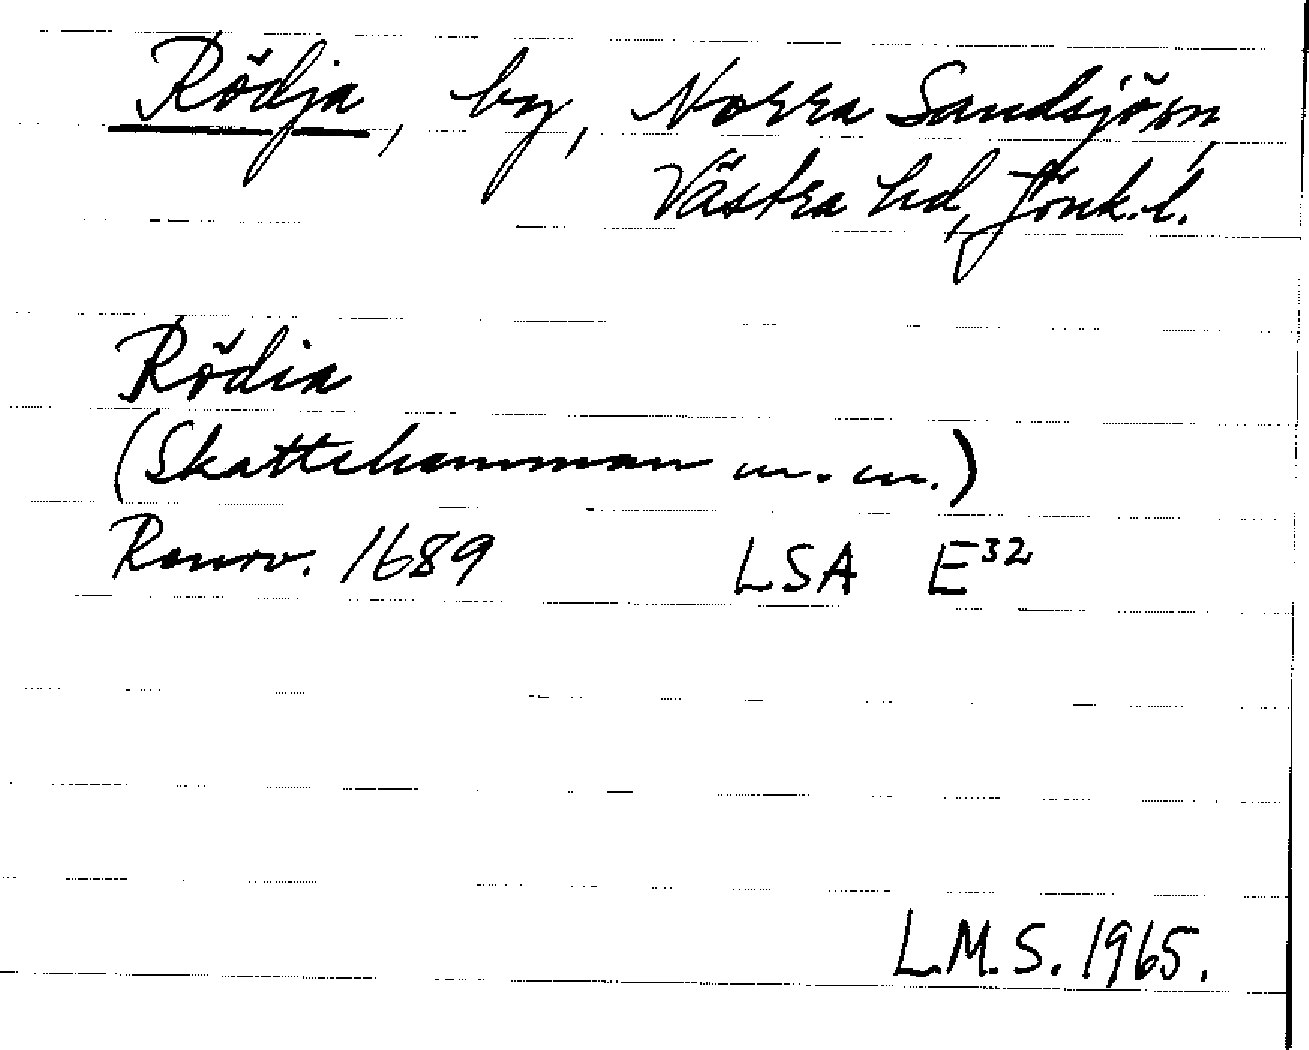 Rödja, by, Norra Sandsjösn,
Västra hd, Jönk.l.
Rödia
(Skattehemman m.m.)
Ranrv. 1689 LSA E32
L.M.S. 1965.